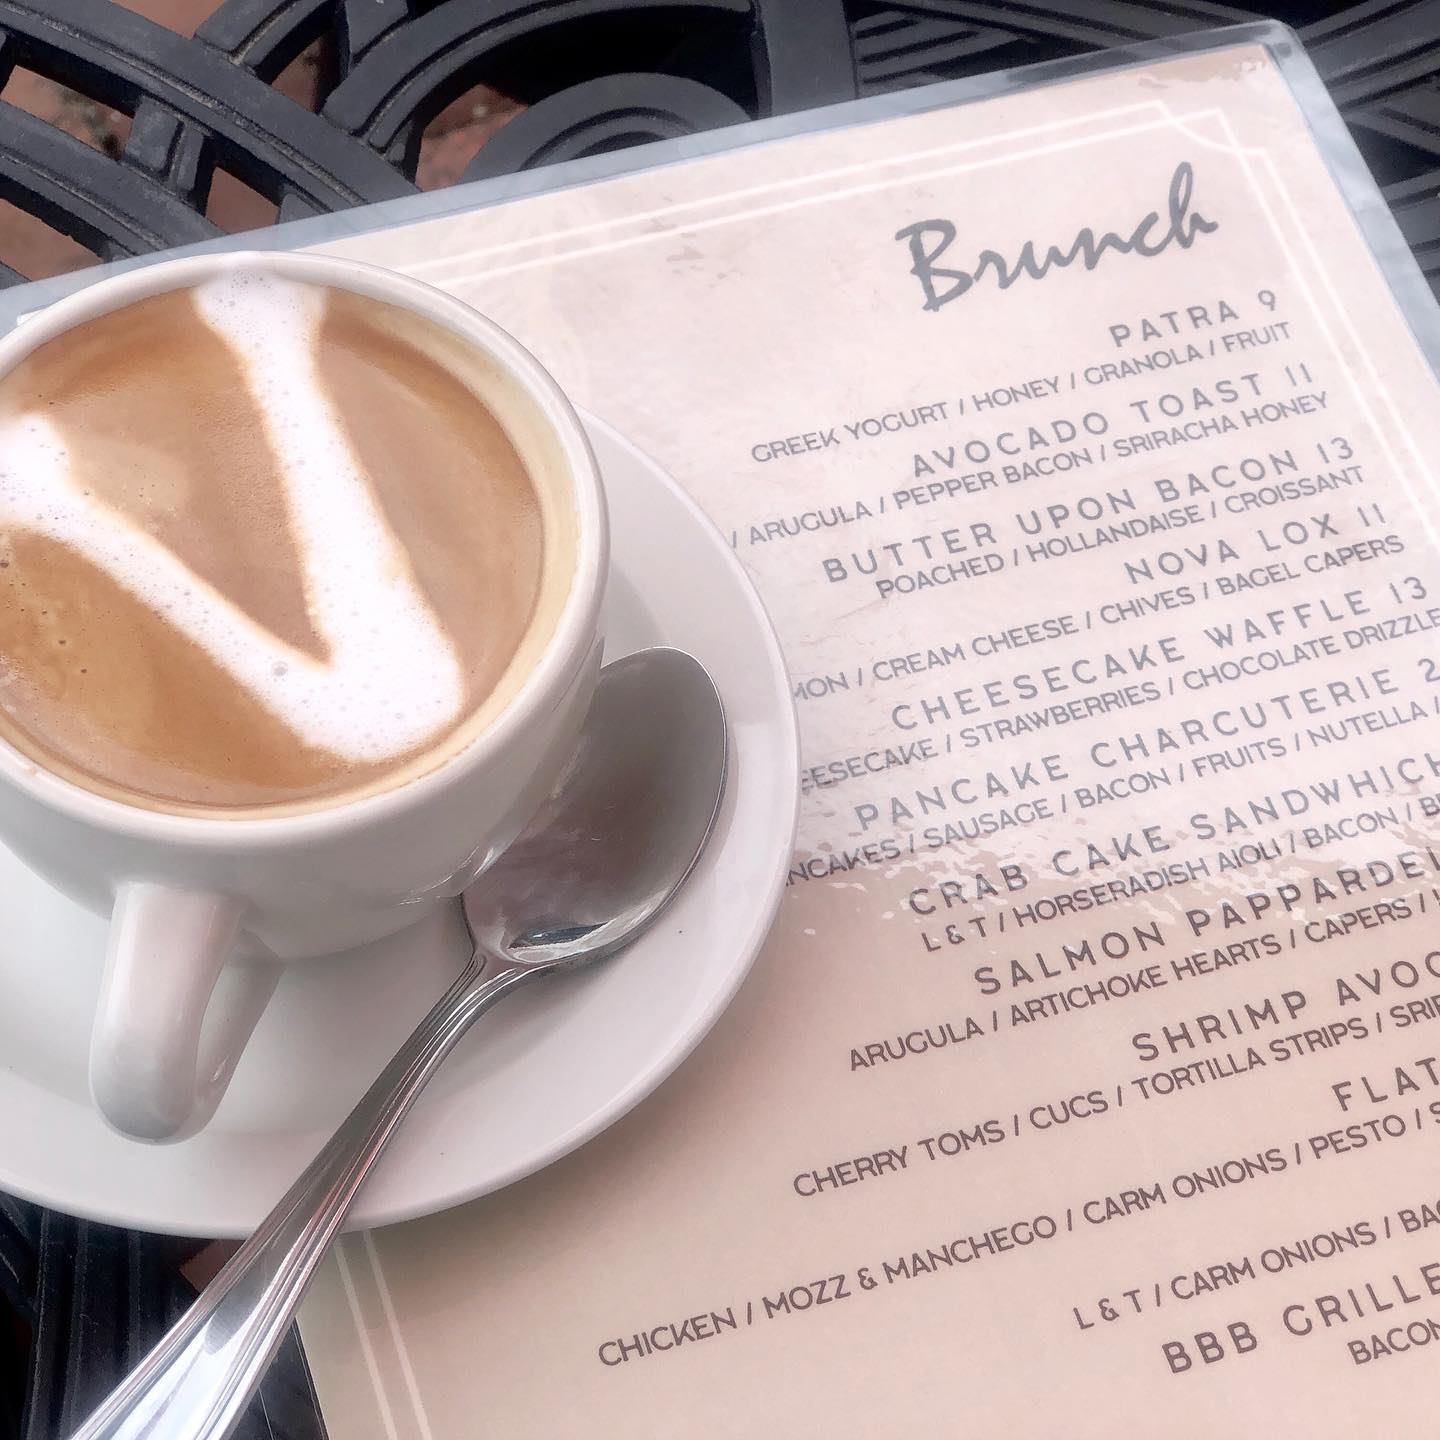 Brunch
PATRA 9
GREEK YOGURT / HONEY / GRANOLA / FRUIT
AVOCADO TOAST 11
/ ARUGULA / PEPPER BACON / SRIRACHA HONEY
BUTTER UPON BACON 13
POACHED / HOLLANDAISE / CROISSANT
NOVA LOX 11
/ CREAM CHEESE / CHIVES / BAGEL CAPERS
CHEESECAKE WAFFLE 13
/ STRAWBERRIES / CHOCOLATE DRIZZLE
PANCAKE CHARCUTERIE
/ SAUSAGE / BACON / FRUITS / NUTELLA /
CRAB CAKE SANDWHICH
L & T / HORSERADISH AIOLI / BACON /
SALMON
ARUGULA / ARTICHOKE HEARTS / CAPERS /
SHRIMP
CHERRY TOMS / CUCS / TORTILLA STRIPS /
CHICKEN / MOZZ & MANCHEGO / CARM ONIONS / PESTO /
L & T / CARM ONIONS /
BBB
BACON